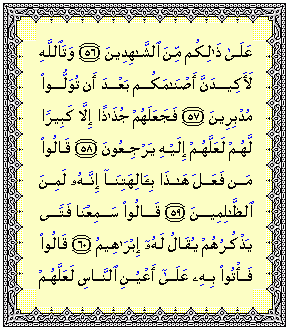 عَلَىٰ ذَٰلِكُم مِّنَ ٱلشَّـٰهِدِينَ ٥٦ وَتَٱللَّهِ
لَأَكِيدَنَّ أَصْنَـٰمَكُم بَعْدَ أَن تُوَلُّوا۟
مُدْبِرِينَ ٥٧ فَجَعَلَهُمْ جُذَٰذًا إِلَّا كَبِيرًا
لَّهُمْ لَعَلَّهُمْ إِلَيْهِ يَرْجِعُونَ ٥٨ قَالُوا۟
مَن فَعَلَ هَـٰذَا بِـَٔالِهَتِنَآ إِنَّهُۥ لَمِنَ
ٱلظَّـٰلِمِينَ ٥٩ قَالُوا۟ سَمِعْنَا فَتًى
يَذْكُرُهُمْ يُقَالُ لَهُۥٓ إِبْرَٰهِيمُ ٦٠ قَالُوا۟
فَأْتُوا۟ بِهِۦ عَلَىٰٓ أَعْيُنِ ٱلنَّاسِ لَعَلَّهُمْ